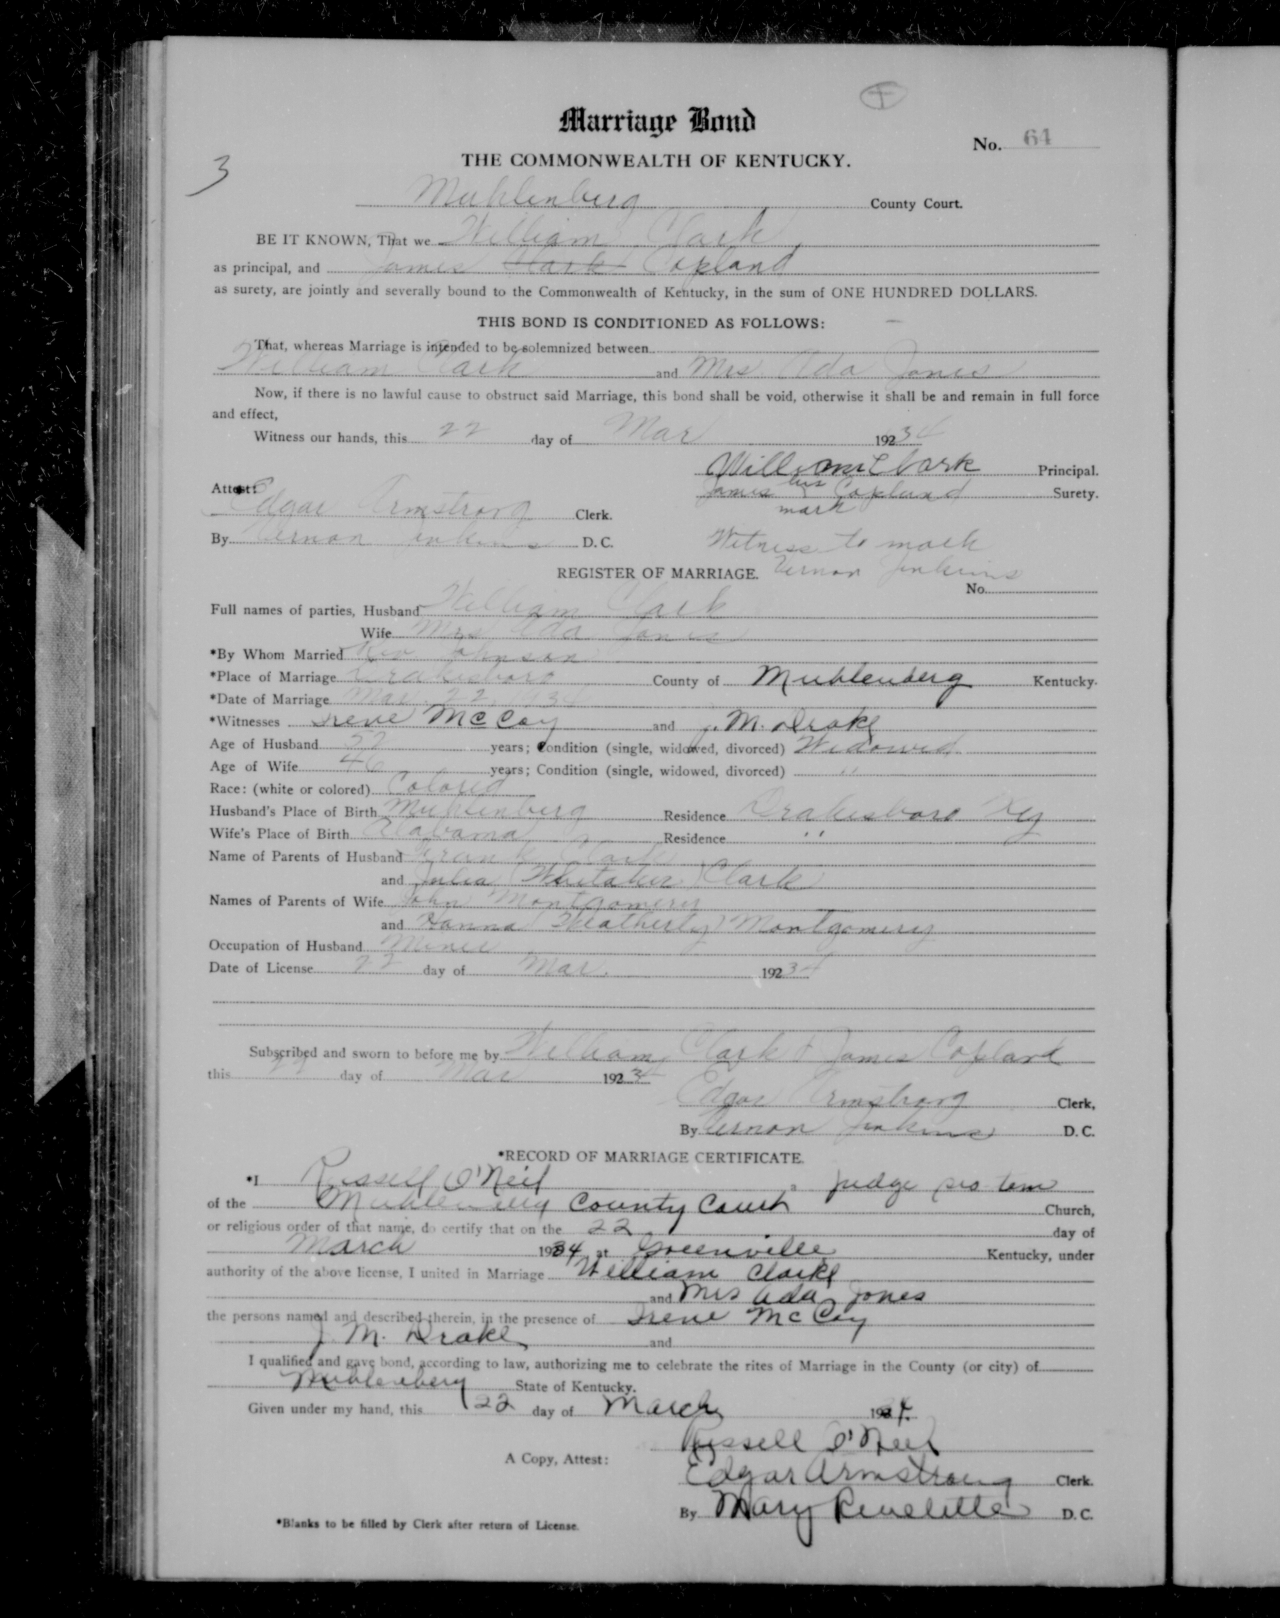 Marriage Bond
No. 64
THE COMMONWEALTH OF KENTUCKY.
3
Muhlenberg County Court.
BE IT KNOWN, That we William Clark
as principal, and James Clark Copland
as surety, are jointly and severally bound to the Commonwealth of Kentucky, in the sum of ONE HUNDRED DOLLARS.
THIS BOND IS CONDITIONED AS FOLLOWS:
That, whereas Marriage is intended to be solemnized between
William Clark and Mrs. Ada Jones
Now, if there is no lawful cause to obstruct said Marriage, this bond shall be void, otherwise it shall be and remain in full force
and effect,
Witness our hands, this 22 day of Mar 19234
William Clark Principal.
Attest: James his Copland Surety.
mark
Edgar Armstrong Clerk.
By Vernon Jenkins D. C. Witness to mark
REGISTER OF MARRIAGE. Vernon Jenkins
No.
Full names of parties, Husband William Clark
Wife Mrs Ada Jones
*By Whom Married Rev Johnson
*Place of Marriage Drakesboro County of Muhlenberg Kentucky.
*Date of Marriage Mar 22, 1934
*Witnesses Irene McCoy and J. M. Drake
Age of Husband years; Condition (single, widowed, divorced) Widowed
Age of Wife 46 years; Condition (single, widowed, divorced) "
Race: (white or colored) Colored
Husband's Place of Birth Muhlenberg Residence Drakesboro Ky
Wife's Place of Birth Alabama Residence "
Name of Parents of Husband Frank Clark
and Julia (Whitaker) Clark
Names of Parents of Wife John Montgomery
and Hanna (Weatherly) Montgomery
Occupation of Husband Miner
Date of License 22 day of Mar. 19234
Subscribed and sworn to before me by William Clark & James Copland
this 22 day of Mar 19234
Edgar Armstrong Clerk,
By Vernon Jenkins D. C.
*RECORD OF MARRIAGE CERTIFICATE.
*I Russell O'Neil a Judge pro tem
of the Muhlenberg County Court Church,
or religious order of that name, do certify that on the 22 day of
March 1934 at Greenville Kentucky, under
authority of the above license, I united in Marriage William Clark
and Mrs Ada Jones
the persons named and described therein, in the presence of Irene McCoy
J. M. Drake and
I qualified and gave bond, according to law, authorizing me to celebrate the rites of Marriage in the County (or city) of
Muhlenberg State of Kentucky.
Given under my hand, this 22 day of March 1934.
Russell O'Neil
A Copy, Attest:
Edgar Armstrong Clerk.
By Mary D. C.
*Blanks to be filled by Clerk after return of License.